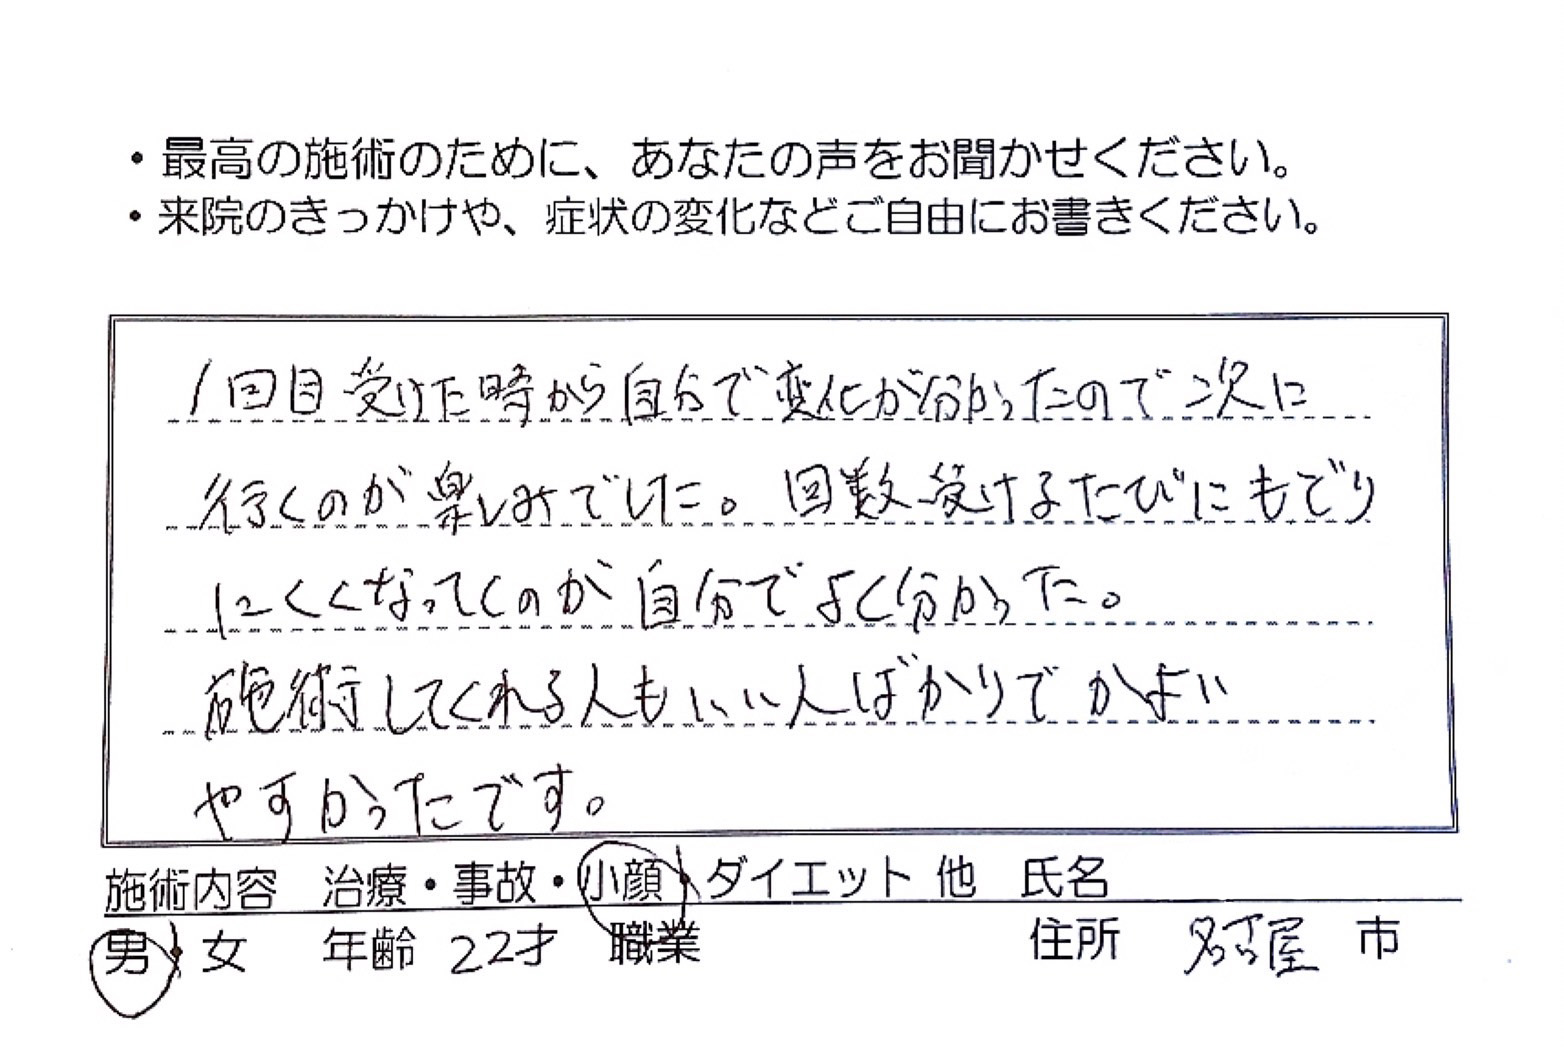 ・最高の施術のために、あなたの声をお聞かせください。
・来院のきっかけや、症状の変化などご自由にお書きください。
1回目受けた時から自分で変化が分かったので次に
行くのが楽しみでした。回数受けるたびにもどり
にくくなってくのが自分でよく分かった。
施術してくれる人もいい人ばかりでかよい
やすかったです。
施術内容 治療・事故・小顔・ダイエット 他 氏名
男・女 年齢 22才 職業 住所 名古屋 市